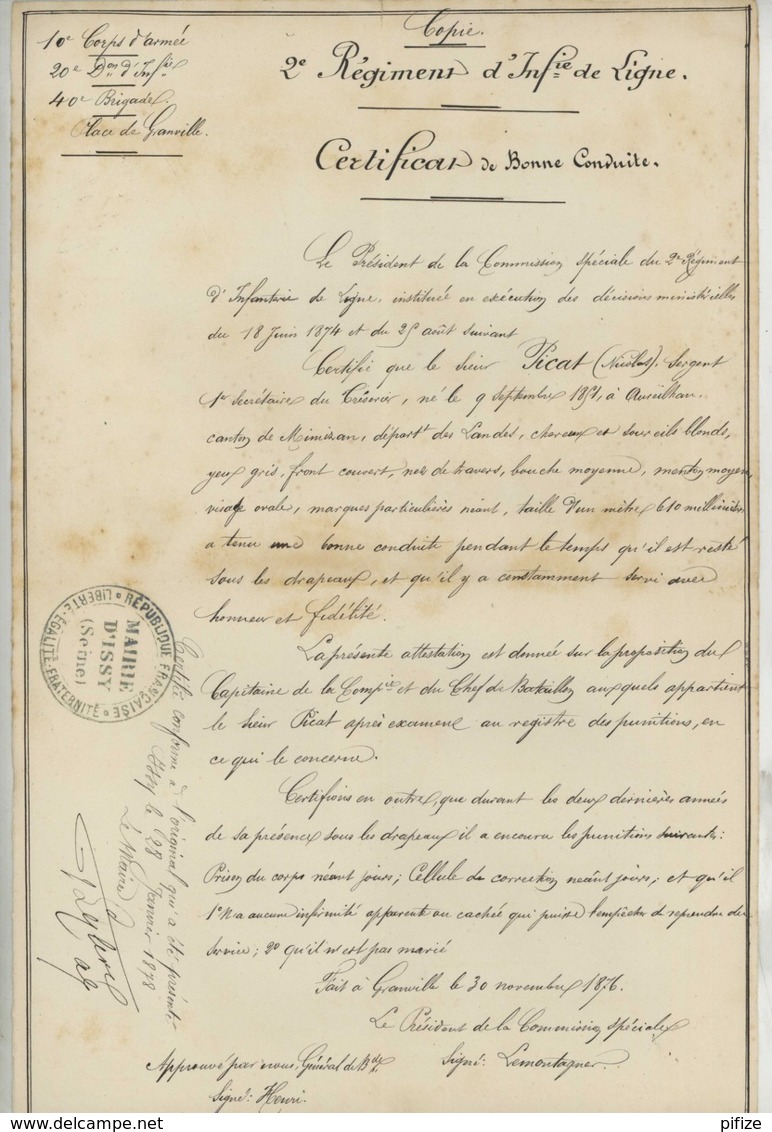 10e Corps d'armée
20e Don d'Infie
40e Brigade.
Place de Granville.
Copie.
2e Régiment d'Infie de Ligne.
Certificat de Bonne Conduite.
Le Président de la Commission spéciale du 2e Régiment
d'Infanterie de Ligne, instituée en exécution des décisions ministérielles
du 18 Juin 1874 et du 25 août suivant
Certifie que le sieur Picat (Nicolas), Sergent
1er Secrétaire du Trésorier, né le 9 septembre 1851, à Aureilhan,
canton de Mimizan, départt des Landes, cheveux et sourcils blonds,
yeux gris, front couvert, nez de travers, bouche moyenne, menton moyen,
visage ovale, marques particulières néant, taille d'un mètre 610 millimètres
a tenu une bonne conduite pendant le temps qu'il est resté
sous les drapeaux, et qu'il y a constamment servi avec
honneur et fidélité.
La présente attestation est donnée sur la proposition du
Capitaine de la Compie et du Chef de Bataillon auxquels appartient
le sieur Picat après examen au registre des punitions, en
ce qui le concerne.
Certifions en outre, que durant les deux dernières années
de sa présence sous les drapeaux il a encouru les punitions suivantes:
Prison du corps néant jours; Cellule de correction néant jours; et qu'il
1o N'a aucune infirmité apparente ou cachée qui puisse l'empêcher de reprendre du
service; 2o qu'il n'est pas marié
Fait à Granville le 30 novembre 1876.
Le Président de la Commission spéciale
Signé: Lemontagner
Approuvé par nous, Général de Bde
Signé: Henri.
RÉPUBLIQUE FRANÇAISE
LIBERTÉ-ÉGALITÉ-FRATERNITÉ
MAIRIE
D'ISSY
(Seine)
Certifié conforme à l'original qui a été présenté
Issy le 28 Janvier 1878
Le Maire
pifize